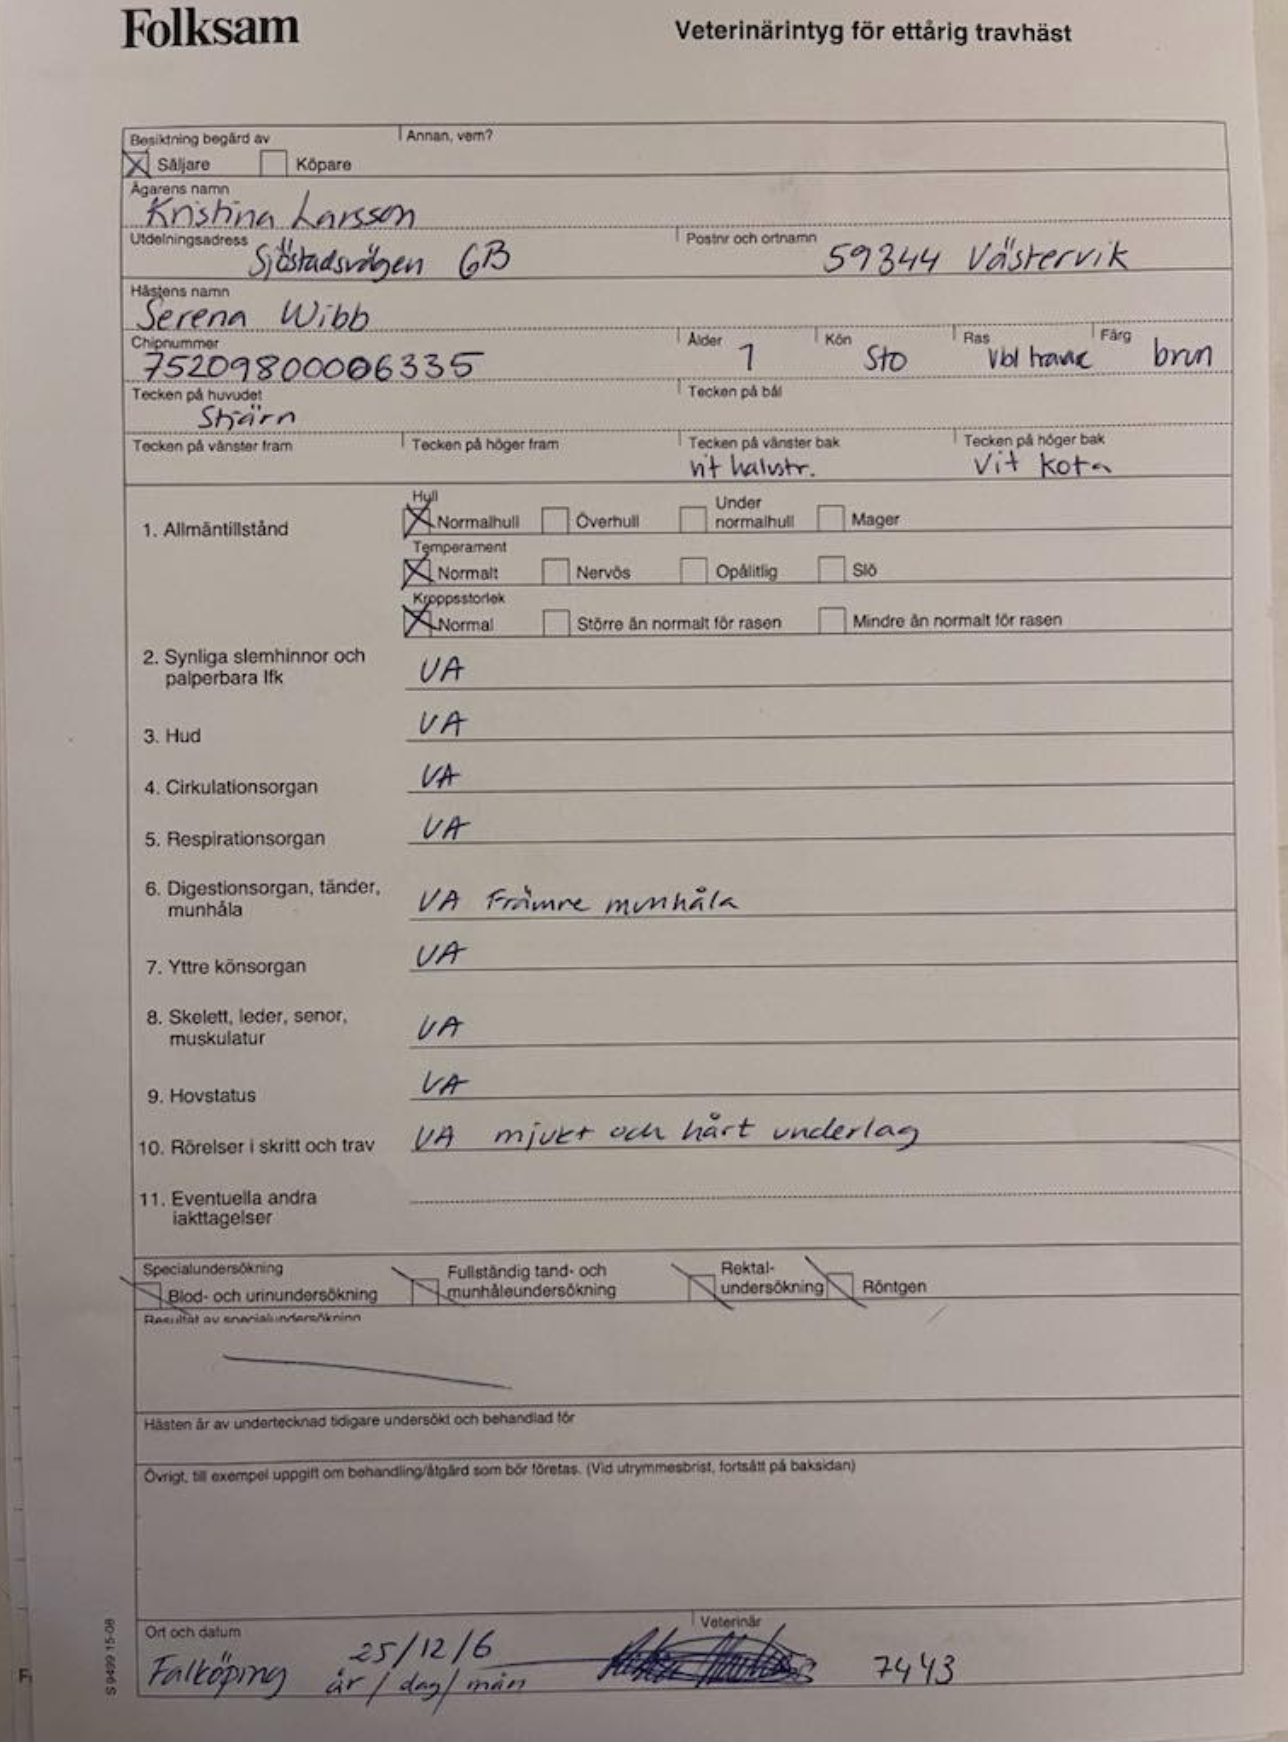 Folksam
Veterinärintyg för ettårig travhäst
Besiktning begärd av
Annan, vem?
Säljare Köpare
Ägarens namn
Kristina Larsson
Utdelningsadress Postnr och ortnamn
Sjöstadsvägen 6B 59344 Västervik
Hästens namn
Serena Wibb
Chipnummer Ålder Kön Ras Färg
75209800006335 1 Sto Vbl brun
Tecken på huvudet Tecken på bål
Stjärn
Tecken på vänster fram Tecken på höger fram Tecken på vänster bak Tecken på höger bak
vit halvstr. Vit kota
Hull
1. Allmäntillstånd Normalhull Överhull Under normalhull Mager
Temperament
Normalt Nervös Opålitlig Slö
Kroppsstorlek
Normal Större än normalt för rasen Mindre än normalt för rasen
2. Synliga slemhinnor och
palperbara lfk UA
3. Hud UA
4. Cirkulationsorgan UA
5. Respirationsorgan UA
6. Digestionsorgan, tänder,
munhåla UA Främre munhåla
7. Yttre könsorgan UA
8. Skelett, leder, senor,
muskulatur UA
9. Hovstatus UA
10. Rörelser i skritt och trav UA mjukt och hårt underlag
11. Eventuella andra
iakttagelser
Specialundersökning
Blod- och urinundersökning
Fullständig tand- och
munhåleundersökning
Rektal-
undersökning
Röntgen
Resultat av specialundersökning
Hästen är av undertecknad tidigare undersökt och behandlad för
Övrigt, till exempel uppgift om behandling/åtgärd som bör företas. (Vid utrymmesbrist, fortsätt på baksidan)
Ort och datum Veterinär
Falköping 25/12/6 7443
år / dag / mån
S 9499 15-08